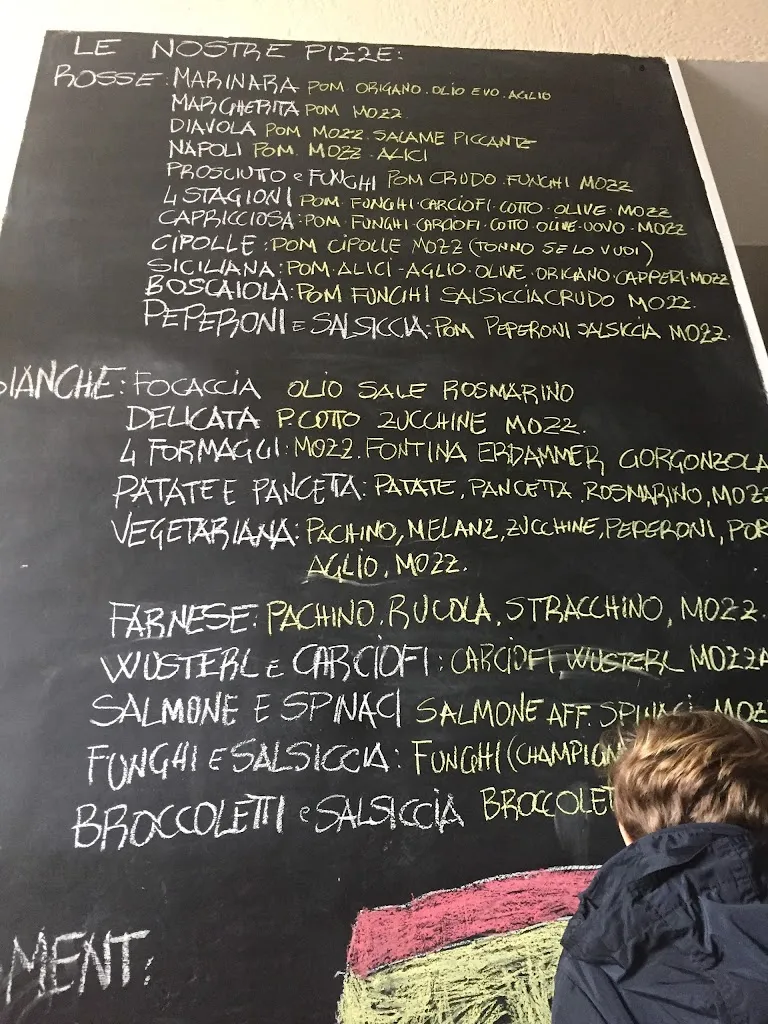 LE NOSTRE PIZZE:
ROSSE: MARINARA POM ORIGANO. OLIO EVO. AGLIO
MARGHERITA POM MOZZ
DIAVOLA POM MOZZ. SALAME PICCANTE
NAPOLI POM. MOZZ. ALICI
PROSCIUTTO e FUNGHI POM CRUDO. FUNGHI MOZZ
4 STAGIONI POM FUNGHI·CARCIOFI·COTTO·OLIVE·MOZZ
CAPRICCIOSA: POM·FUNGHI·CARCIOFI·COTTO OLIVE·UOVO·MOZZ
CIPOLLE: POM CIPOLLE MOZZ (TONNO SE LO VUOI)
SICILIANA: POM·ALICI-AGLIO·OLIVE·ORIGANO·CAPPERI·MOZZ
BOSCAIOLA: POM FUNGHI SALSICCIA CRUDO MOZZ.
PEPERONI E SALSICCIA: POM PEPERONI SALSICCIA MOZZ.
BIANCHE: FOCACCIA OLIO SALE ROSMARINO
DELICATA P.COTTO ZUCCHINE MOZZ.
4 FORMAGGI: MOZZ. FONTINA ERDAMMER GORGONZOLA
PATATE E PANCETTA: PATATE, PANCETTA. ROSMARINO, MOZZ
VEGETARIANA: PACHINO, MELANZ, ZUCCHINE, PEPERONI, POR
AGLIO, MOZZ.
FARNESE: PACHINO. RUCOLA, STRACCHINO, MOZZ.
WUSTERL E CARCIOFI: CARCIOFI, WUSTERL MOZZA
SALMONE E SPINACI SALMONE AFF. SPINACI MOZ
FUNGHI E SALSICCIA: FUNGHI (CHAMPIGN
BROCCOLETTI e SALSICCIA BROCCOLET
MENT: